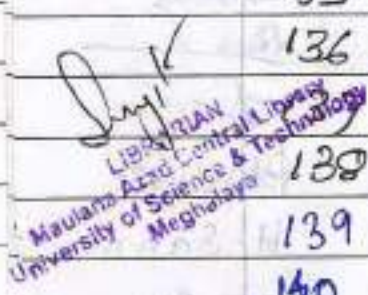 136
LIBRARIAN
Maulana Azad Central Library
University of Science & Technology
Meghalaya
138
139
140